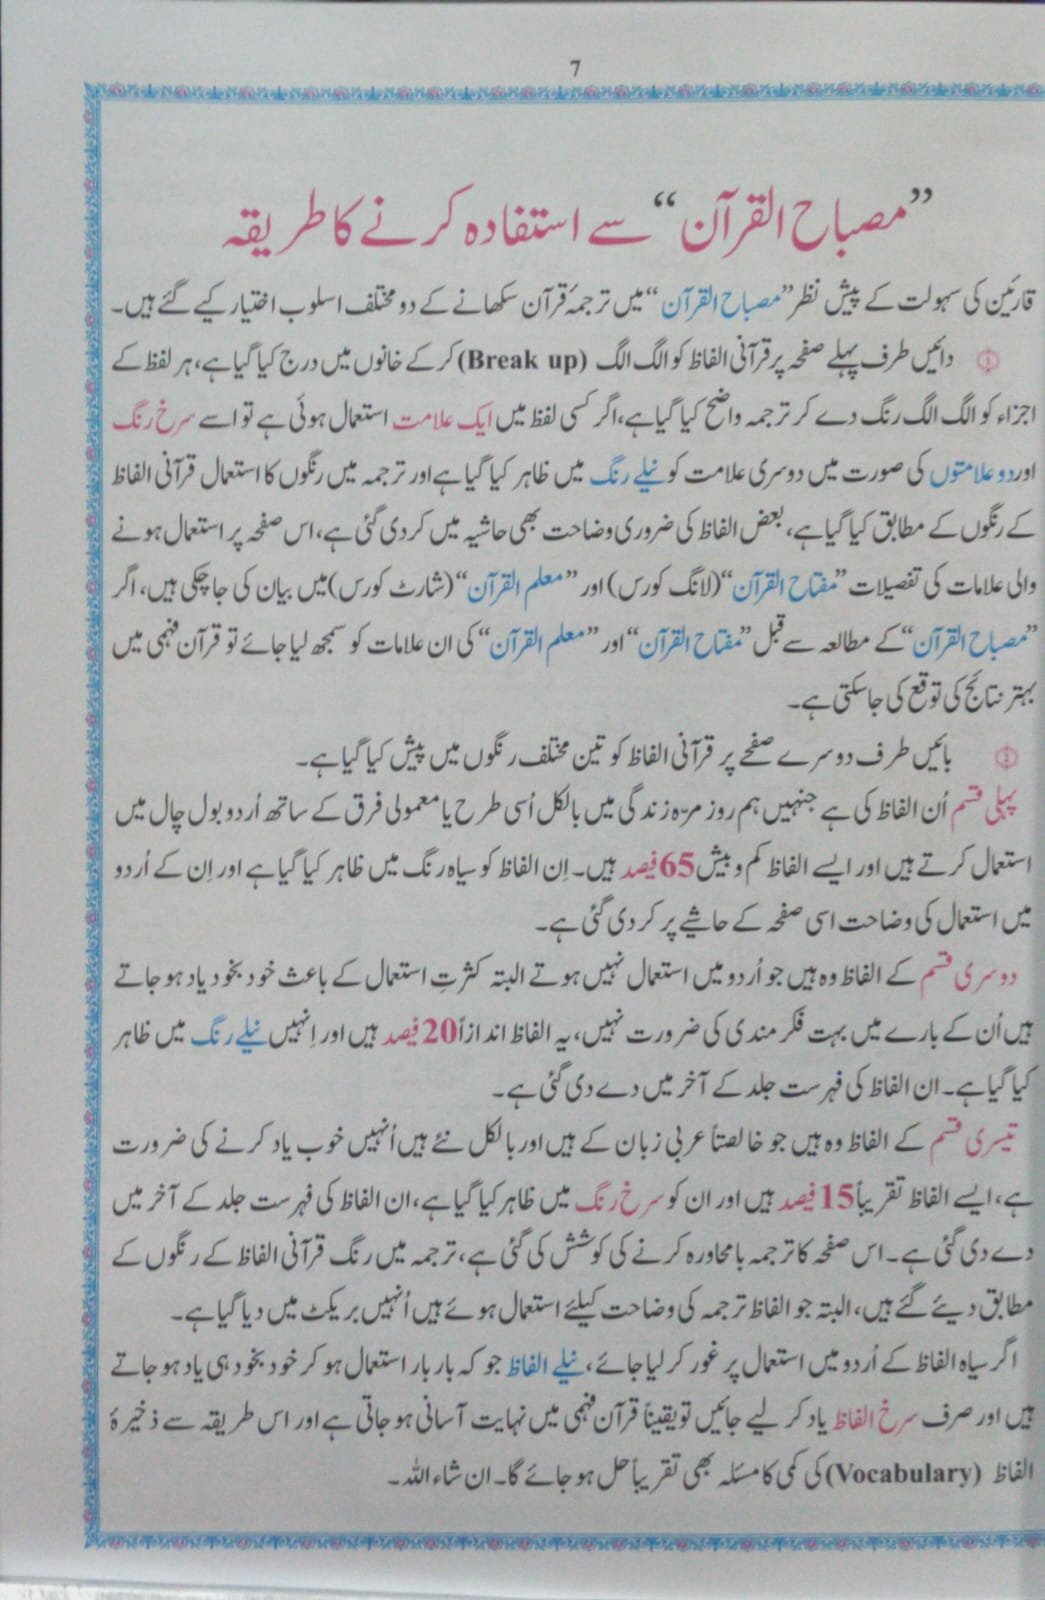 7
”مصباح القرآن“ سے استفادہ کرنے کا طریقہ
قارئین کی سہولت کے پیش نظر ”مصباح القرآن“ میں ترجمۂ قرآن سکھانے کے دو مختلف اسلوب اختیار کیے گئے ہیں۔
دائیں طرف پہلے صفحہ پر قرآنی الفاظ کو الگ الگ (Break up) کر کے خانوں میں درج کیا گیا ہے، ہر لفظ کے
اجزاء کو الگ الگ رنگ دے کر ترجمہ واضح کیا گیا ہے، اگر کسی لفظ میں ایک علامت استعمال ہوئی ہے تو اسے سرخ رنگ
اور دو علامتوں کی صورت میں دوسری علامت کو نیلے رنگ میں ظاہر کیا گیا ہے اور ترجمہ میں رنگوں کا استعمال قرآنی الفاظ
کے رنگوں کے مطابق کیا گیا ہے، بعض الفاظ کی ضروری وضاحت بھی حاشیہ میں کر دی گئی ہے، اس صفحہ پر استعمال ہونے
والی علامات کی تفصیلات ”مفتاح القرآن“ (لانگ کورس) اور ”معلم القرآن“ (شارٹ کورس) میں بیان کی جا چکی ہیں، اگر
”مصباح القرآن“ کے مطالعہ سے قبل ”مفتاح القرآن“ اور ”معلم القرآن“ کی ان علامات کو سمجھ لیا جائے تو قرآن فہمی میں
بہتر نتائج کی توقع کی جا سکتی ہے۔
بائیں طرف دوسرے صفحے پر قرآنی الفاظ کو تین مختلف رنگوں میں پیش کیا گیا ہے۔
پہلی قسم اُن الفاظ کی ہے جنہیں ہم روز مرّہ زندگی میں بالکل اُسی طرح یا معمولی فرق کے ساتھ اُردو بول چال میں
استعمال کرتے ہیں اور ایسے الفاظ کم و بیش 65 فیصد ہیں۔ اِن الفاظ کو سیاہ رنگ میں ظاہر کیا گیا ہے اور اِن کے اُردو
میں استعمال کی وضاحت اسی صفحہ کے حاشیے پر کر دی گئی ہے۔
دوسری قسم کے الفاظ وہ ہیں جو اُردو میں استعمال نہیں ہوتے البتہ کثرتِ استعمال کے باعث خود بخود یاد ہو جاتے
ہیں اُن کے بارے میں بہت فکر مندی کی ضرورت نہیں، یہ الفاظ اندازاً 20 فیصد ہیں اور اِنہیں نیلے رنگ میں ظاہر
کیا گیا ہے۔ ان الفاظ کی فہرست جلد کے آخر میں دے دی گئی ہے۔
تیسری قسم کے الفاظ وہ ہیں جو خالصتاً عربی زبان کے ہیں اور بالکل نئے ہیں اُنہیں خوب یاد کرنے کی ضرورت
ہے، ایسے الفاظ تقریباً 15 فیصد ہیں اور ان کو سرخ رنگ میں ظاہر کیا گیا ہے، ان الفاظ کی فہرست جلد کے آخر میں
دے دی گئی ہے۔ اس صفحہ کا ترجمہ بامحاورہ کرنے کی کوشش کی گئی ہے، ترجمہ میں رنگ قرآنی الفاظ کے رنگوں کے
مطابق دیئے گئے ہیں، البتہ جو الفاظ ترجمہ کی وضاحت کیلئے استعمال ہوئے ہیں اُنہیں بریکٹ میں دیا گیا ہے۔
اگر سیاہ الفاظ کے اُردو میں استعمال پر غور کر لیا جائے، نیلے الفاظ جو کہ بار بار استعمال ہو کر خود بخود ہی یاد ہو جاتے
ہیں اور صرف سرخ الفاظ یاد کر لیے جائیں تو یقیناً قرآن فہمی میں نہایت آسانی ہو جاتی ہے اور اس طریقہ سے ذخیرۂ
الفاظ (Vocabulary) کی کمی کا مسئلہ بھی تقریباً حل ہو جائے گا۔ ان شاء اللہ۔